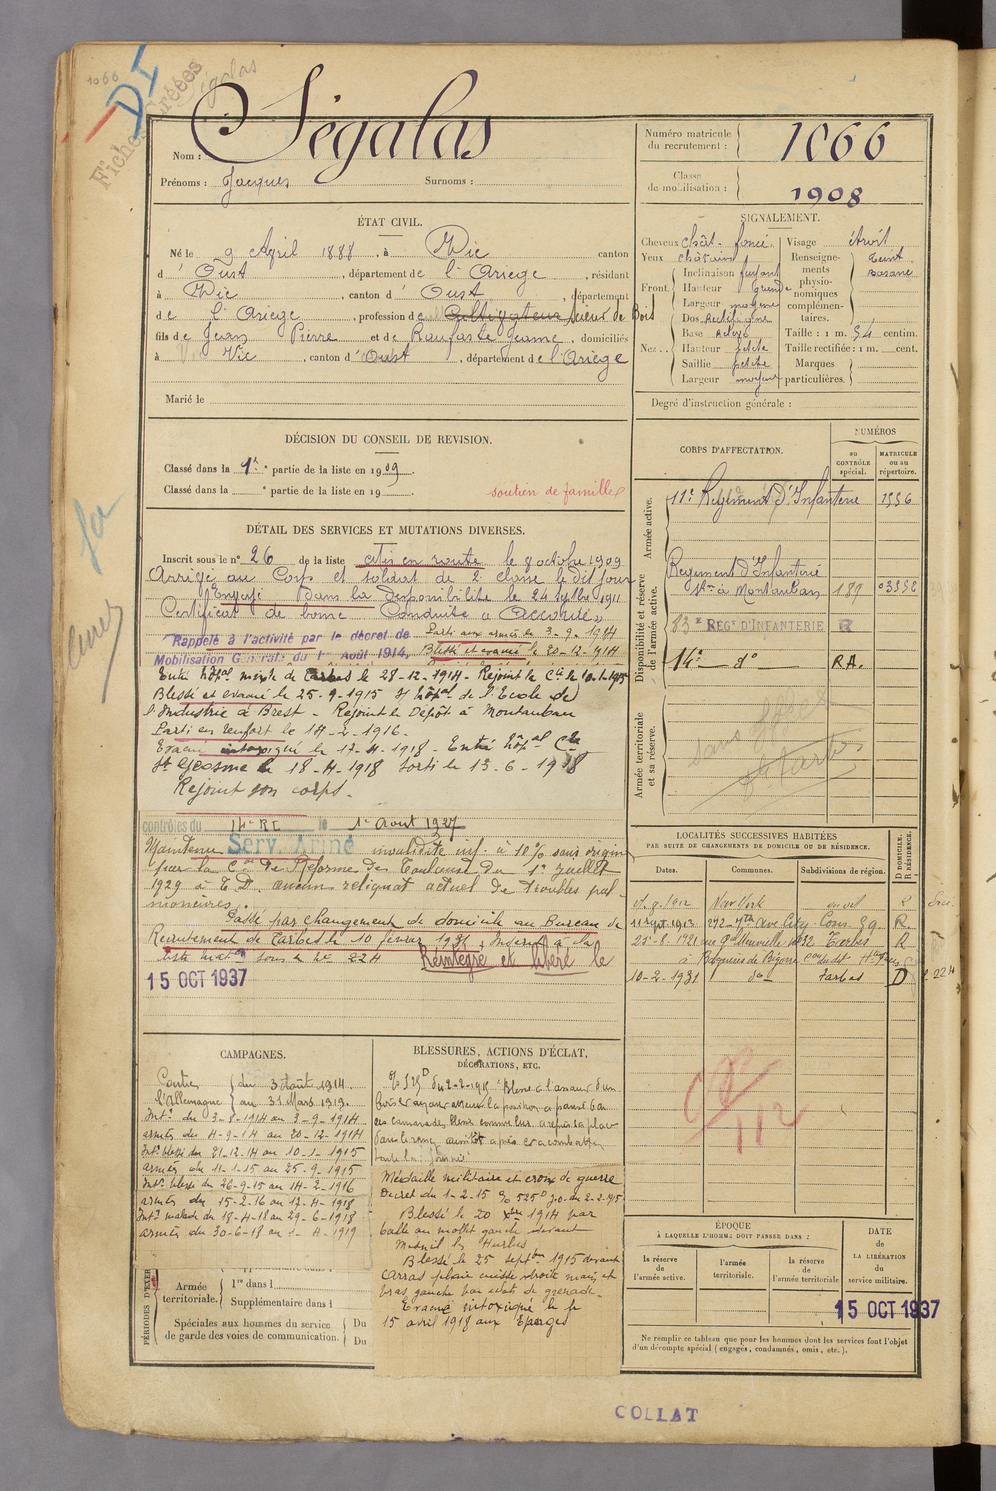 1066
DI
Fiches créées
Ségalas
Nom : Ségalas
Prénoms : Jacques Surnoms :
Numéro matricule du recrutement : 1066
Classe de mobilisation : 1908
ÉTAT CIVIL.
Né le 9 Avril 1888, à Vic canton
d'Oust, département de l'Ariege, résidant
à Vic, canton d'Oust, département
de l'Ariege, profession de Cultivateur Scieur de Bois
fils de Jean Pierre et de Raufaste Jeanne, domiciliés
à Vic, canton d'Oust, département de l'Ariege
Marié le
SIGNALEMENT.
Cheveux chât. foncé
Yeux châtains
Front. Inclinaison fuyant
Hauteur grande
Largeur moyenne
Nez.. Dos rectiligne
Base relevé
Hauteur petite
Saillie petite
Largeur moyen
Visage étroit
Renseignements physionomiques complémentaires. teint basané
Taille : 1 m. 54 centim.
Taille rectifiée : 1 m. cent.
Marques particulières.
Degré d'instruction générale :
DÉCISION DU CONSEIL DE REVISION.
Classé dans la 1re partie de la liste en 1909.
Classé dans la e partie de la liste en 19
soutien de famille
DÉTAIL DES SERVICES ET MUTATIONS DIVERSES.
Inscrit sous le n° 26 de la liste mis en route le 8 octobre 1909
Arrivé au Corps et soldat de 2e classe le dit jour
Envoyé dans la disponibilité le 24 septbre 1911
Certificat de bonne Conduite "Accordé"
Rappelé à l'activité par le décret de
Mobilisation Générale du 1er Août 1914,
Parti aux armées le 3-9-1914
Blessé et évacué le 20-12-1914
Entré hôpal mixte de Tarbes le 28-12-1914 - Rejoint le Cie le 10-1-1915
Blessé et évacué le 25-9-1915 hôpal de l'Ecole de
l'Industrie à Brest - Rejoint le Dépôt à Montauban
Parti en renfort le 14-2-1916.
Evacué intoxiqué le 17-4-1918 - Entré hôpal
St Gosme le 18-4-1918 sorti le 13-6-1918
Rejoint son corps.
contrôles du 14e RI le 1er Aout 1927
Maintenu Serv. Armé invalidité inf. à 10% sans origine
par la Con de Réforme de Toulouse du 1er Juillet
1929 à E.D. aucun reliquat actuel de troubles pul-
monaires.
Passé par changement de domicile au Bureau de
Recrutement de Tarbes le 10 février 1931, Inscrit à la
liste matle sous le N° 224 Réintégré et libéré le
15 OCT 1937
CORPS D'AFFECTATION.
NUMÉROS
AU CONTRÔLE spécial.
MATRICULE ou au répertoire.
Armée active.
11e Régiment d'Infanterie 1556
Disponibilité et réserve de l'armée active.
Régiment d'Infanterie
Stné à Montauban 187 03352
83e REGt D'INFANTERIE R
14e do RA.
Armée territoriale et sa réserve.
sans affect
Tarbes
LOCALITÉS SUCCESSIVES HABITÉES
PAR SUITE DE CHANGEMENTS DE DOMICILE OU DE RÉSIDENCE.
Dates. Communes. Subdivisions de région. D DOMICILE. R RÉSIDENCE.
New York R
1913 272 7th Ave City Cons Gg. R.
25-8-1921 Tarbes R
à Bagnères de Bigorre
10-2-1931 do Tarbes D 224
112
CAMPAGNES.
Contre l'Allemagne du 3 Août 1914
au 31 Mars 1919.
Intr du 3-8-1914 au 3-9-1914
armées du 4-9-14 au 20-12-1914
Intr blessé du 21-12-14 au 10-1-1915
armées du 11-1-15 au 25-9-1915
Intr blessé du 26-9-15 au 14-2-1916
armées du 15-2-16 au 17-4-1918
Intr malade du 18-4-18 au 29-6-1918
armées du 30-6-18 au 1919
BLESSURES, ACTIONS D'ÉCLAT,
DÉCORATIONS, ETC.
Médaille militaire et croix de guerre
Décret du 1-2-15 525 D J.O. du 2-2-1915
Blessé le 20 Xbre 1914 par
balle au mollet gauche devant
Mesnil les Hurlus
Blessé le 25 septbre 1915 devant
Arras plaie cuisse droite main et
bras gauche par éclats de grenade.
Evacué intoxiqué le
15 avril 1918 aux Eparges
PÉRIODES D'EXER
Armée territoriale.
1re dans l
Supplémentaire dans l
Spéciales aux hommes du service de garde des voies de communication.
Du
Du
ÉPOQUE
À LAQUELLE L'HOMME DOIT PASSER DANS :
la réserve de l'armée active.
l'armée territoriale.
la réserve de l'armée territoriale
DATE de LA LIBÉRATION du service militaire.
15 OCT 1937
Ne remplir ce tableau que pour les hommes dont les services font l'objet
d'un décompte spécial (engagés, condamnés, omis, etc.).
COLLAT